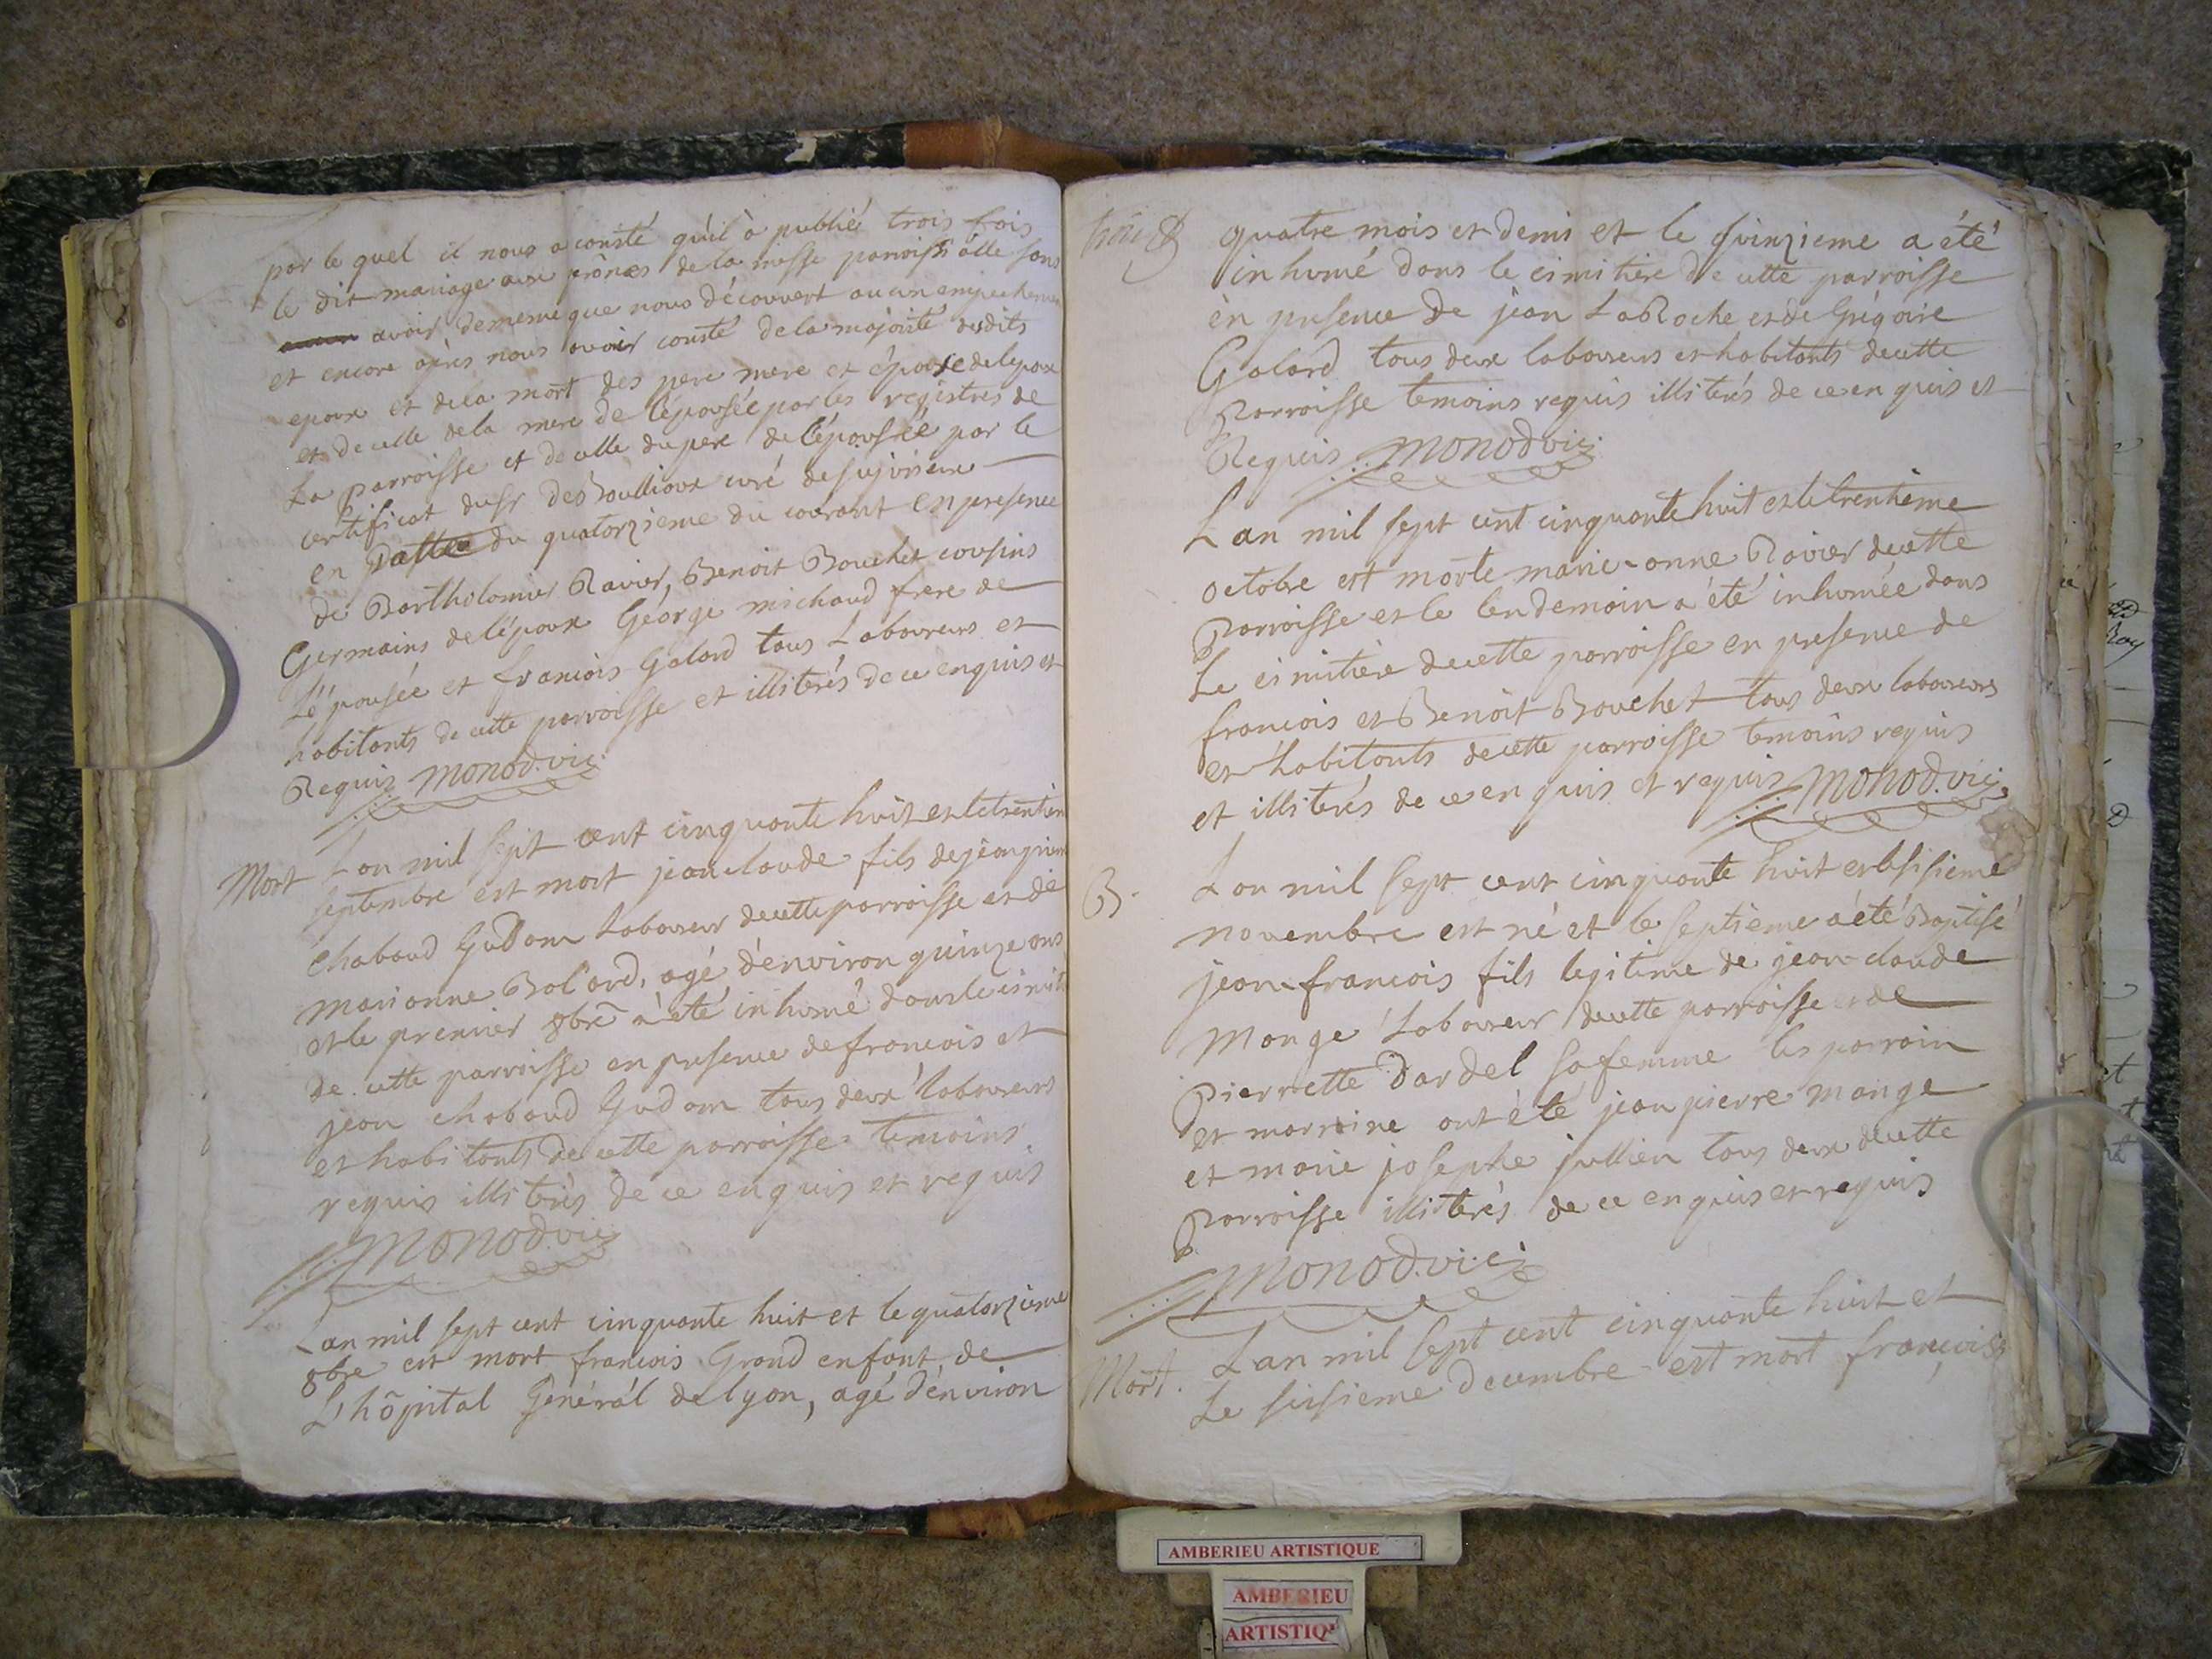 par le quel il nous a consté qu'il à publié trois fois
le dit mariage aux prônes de la messe parroissialle sans
avoir de meme que nous découvert aucun empechem
et encore après nous avoir consté de la majorité desdits
epoux et de la mort des pere mere et épouse de lepoux
et de celle de la mere de l'épousée par les registres de
La parroisse et de celle du pere de l'épousée par le
certificat du Sr des Boullioux curé de sujurieux
en du quatorzieme du courant en presence
de Bartholomier Ravier, Benoit Bouchet cousins
Germains de l'époux George michaud frere de
L'épousée et francois Galard tous Laboureurs et
habitants de cette parroisse et illiterés de ce enquis et
Requis monod. vic.
Mort
L'an mil sept cent cinquante huit et le trentiem
septembre est mort jean claude fils de jean pierre
chaboud Gudom Laboureur de cette parroisse et de
marianne Bolard, agé d'environ quinze ans
et le premier 8bre à été inhumé dans le cimiti
de cette parroisse en presence de francois et
jean chaboud Gudom tous deux laboureurs
et habitants de cette parroisse temoins
requis illiterés de ce enquis et requis
Monod. vic.
L'an mil sept cent cinquante huit et le quatorzieme
8bre est mort francois Grand enfant de
L'hôpital Général de lyon, agé d'environ
quatre mois et demi et le quinzieme a été
inhumé dans le cimitière de cette parroisse
èn presence de jean LaRoche et de Grégoire
Galard tous deux laboureurs et habitants de cette
Parroisse temoins requis illiterés de ce en quis et
Requis monod vic.
L'an mil sept cent cinquante huit et le trentieme
octobre est morte marie-anne Ravier de cette
Parroisse et le lendemain a été inhumée dans
Le cimitière de cette parroisse en presence de
francois et Benoit Bouchet tous deux laboureurs
et habitants de cette parroisse temoins requis
et illiterés de ce en quis et requis monod. vic.
B.
L'an mil sept cent cinquante huit et le sisieme
novembre est né et le septieme a été Baptisé
jean-francois fils legitime de jean-claude
Monge Laboureur de cette parroisse et de
Pierrette Dardel sa femme les parrain
et marraine ont été jean pierre monge
et marie josephe jullien tous deux de cette
Parroisse illiterés de ce enquis et requis
Monod. vic.
Mort.
L'an mil sept cent cinquante huit et
Le sisieme decembre est mort françois
AMBERIEU ARTISTIQUE
AMBERIEU
ARTISTIQ